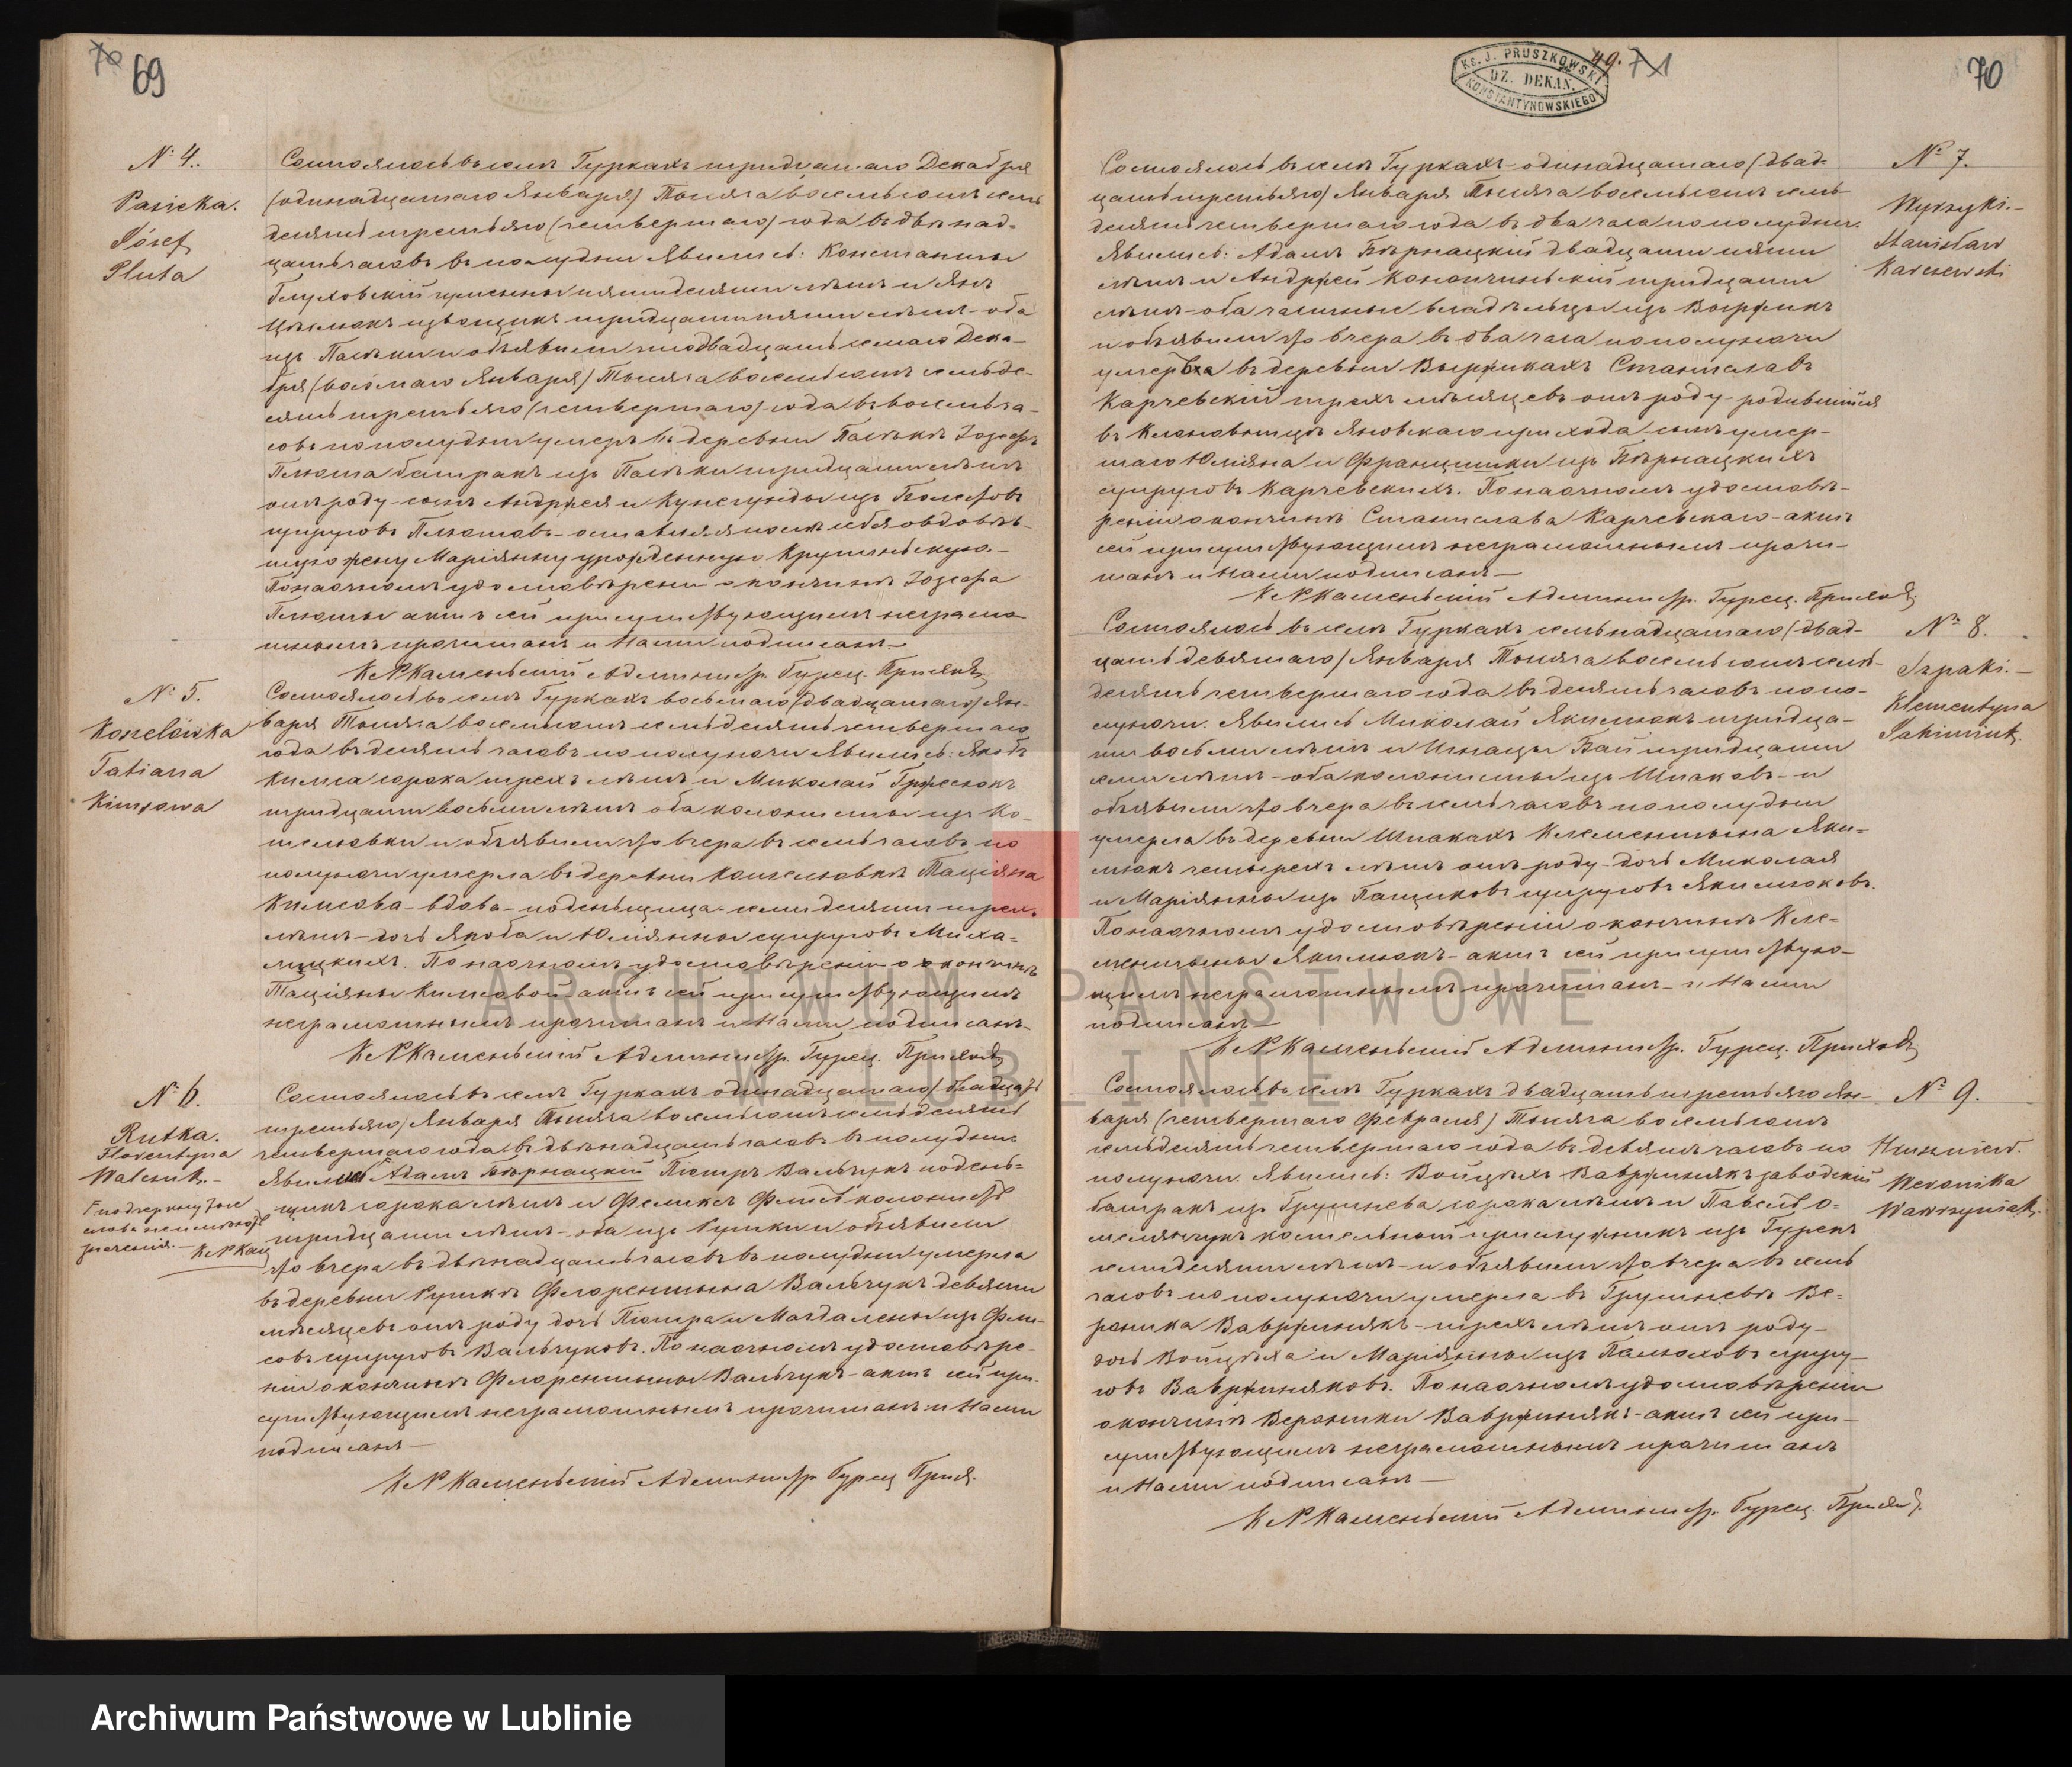 70 69
№ 4.
Pasieka.
Józef
Pluta
Состоялось въ селѣ Туркахъ тридцатаго Декабря
(одинадцатаго Января) Тысяча восемьсотъ семь
десятъ третьяго (четвертаго) года въ двѣнад-
цать часовъ въ полудни Явились: Константы
Глуховскій пятидесяти лѣтъ и Янъ
извощикъ тридцати пяти лѣтъ - оба
изъ Пасѣки и объявили что двадцать седмаго Дека-
бря (восмаго Января) Тысяча восемьсотъ семьде-
сятъ третьяго (четвертаго) года въ восемь ча-
совъ пополудни умеръ въ деревни Пасѣкѣ Іозефъ
Плюта батракъ изъ Пасѣки тридцати лѣтъ
отъ роду сынъ Андржея и Кунегунды изъ
супруговъ Плютовъ - оставивъ послѣ себя овдовѣв-
шую жену Маріянну урожденную
По наочномъ удостовѣреніи о кончинѣ Іозефа
Плюты актъ сей присутствующимъ неграмо
тнымъ прочитанъ и Нами подписанъ.-
К Р Каменьскій Администр. Турец. Прихода
№ 5.
Koszelówka
Tatiana
Kimsowa
Состоялось въ селѣ Туркахъ восьмаго (двадцатаго) Ян-
варя Тысяча восемьсотъ семьдесятъ четвертаго
года въ десять часовъ по полуночи Явились: Якобъ
Кимса сорока трехъ лѣтъ и Миколай
тридцати восьми лѣтъ оба колонисты изъ Ко-
шелювки и объявили что вчера въ семь часовъ по
полуночи умерла въ деревни Кошелювкѣ Таціяна
Кимсова - вдова - поденьщица - семидесяти трехъ
лѣтъ - дочь Якоба и Юліянны супруговъ Миха-
лецкихъ. По наочномъ удостовѣреніи о кончинѣ
Таціяны Кимсовой актъ сей присутствующимъ
неграмотнымъ прочитанъ и Нами подписанъ.
К Р Каменьскій Администр. Турец. Прихода
№ 6.
Rutka.
Florentyna
Walczuk.-
Подчеркнутые
слова неимѣютъ
значенія.-
К Р Кам
Состоялось въ селѣ Туркахъ одинадцатаго (двадцать
третьяго) Января Тысяча восемьсотъ семьдесятъ
четвертаго года въ двѣнадцать часовъ въ полудни
Явились Адамъ Бѣрнацкій Піотръ Вальчукъ подень-
щикъ сорока лѣтъ и Феликсъ Фись колонистъ
тридцати лѣтъ - оба изъ Рутки и объявили
что вчера въ двѣнадцать часовъ въ полудни умерла
въ деревни Руткѣ Флорентына Вальчукъ девяти
мѣсяцевъ отъ роду дочь Піотра и Магдалены изъ Фи-
совъ супруговъ Вальчуковъ. По наочномъ удостовѣре-
ніи о кончинѣ Флорентыны Вальчукъ - актъ сей при-
сутствующимъ неграмотнымъ прочитанъ и Нами
подписанъ —
К Р Каменьскій Администр Турец Прих.
Ks. J. PRUSZKOWSKI
DZ. DEKAN.
KONSTANTYNOWSKIEGO
49. 71
70
№ 7.
Wyrzyki.-
Stanisław
Karczewski
Состоялось въ селѣ Туркахъ одинадцатаго (двад-
цать третьяго) Января Тысяча восемьсотъ семь-
десятъ четвертаго года въ два часа по полудни.
Явились: Адамъ Бѣрнацкій двадцати пяти
лѣтъ и Андржей тридцати
лѣтъ - оба частные владѣльцы изъ Выржикъ
и объявили что вчера въ два часа по полуночи
умеръ въ деревни Выржикахъ Станиславъ
Карчевскій трехъ мѣсяцевъ отъ роду - родившійся
въ Яновскаго прихода сынъ умер-
шаго Юліяна и Францишки изъ Бѣрнацкихъ
супруговъ Карчевскихъ. По наочномъ удостовѣ-
реніи о кончинѣ Станислава Карчевскаго - актъ
сей присутствующимъ неграмотнымъ прочи-
танъ и Нами подписанъ —
К Р Каменьскій Администр. Турец. Прихода
№ 8.
Szpaki.-
Klementyna
Jakimiuk.
Состоялось въ селѣ Туркахъ семьнадцатаго (двад-
цать девятаго) Января Тысяча восемьсотъ семь-
десятъ четвертаго года въ десять часовъ попо-
луночи. Явились Миколай Якимюкъ тридца-
ти восьми лѣтъ и Игнацы Бай тридцати
семи лѣтъ - оба колонисты изъ Шпаковъ - и
объявили что вчера въ семь часовъ по полудни
умерла въ деревни Шпакахъ Клементына Яки-
мюкъ четырехъ лѣтъ отъ роду - дочь Миколая
и Маріянны изъ Пащуковъ супруговъ Якимюковъ.
По наочномъ удостовѣреніи о кончинѣ Кле-
ментыны Якимюкъ - актъ сей присутствую-
щимъ неграмотнымъ прочитанъ - и Нами
подписанъ —
К Р Каменьскій Администр. Турец. Прихода
№ 9.
Hruszniew.
Weronika
Wawrzyniak.
Состоялось въ селѣ Туркахъ двадцать третьяго Ян-
варя (четвертаго Февраля) Тысяча восемьсотъ
семьдесятъ четвертаго года въ девять часовъ по
полуночи. Явились: Войцѣхъ Вавржинякъ заводскій
батракъ изъ Грушнева сорока лѣтъ и Павелъ О-
мелянчукъ костельный прислужникъ изъ Турекъ
семидесяти лѣтъ - и объявили что вчера въ семь
часовъ по полуночи умерла въ Грушневѣ Ве-
роника Вавржинякъ - трехъ лѣтъ отъ роду -
дочь Войцѣха и Маріянны изъ супру-
говъ Вавржиняковъ. По наочномъ удостовѣреніи
о кончинѣ Вероники Вавржинякъ - актъ сей при-
сутствующимъ неграмотнымъ прочитанъ
и Нами подписанъ —
К Р Каменьскій Администр. Турец. Прихода
ARCHIWUM PAŃSTWOWE
W LUBLINIE
Archiwum Państwowe w Lublinie